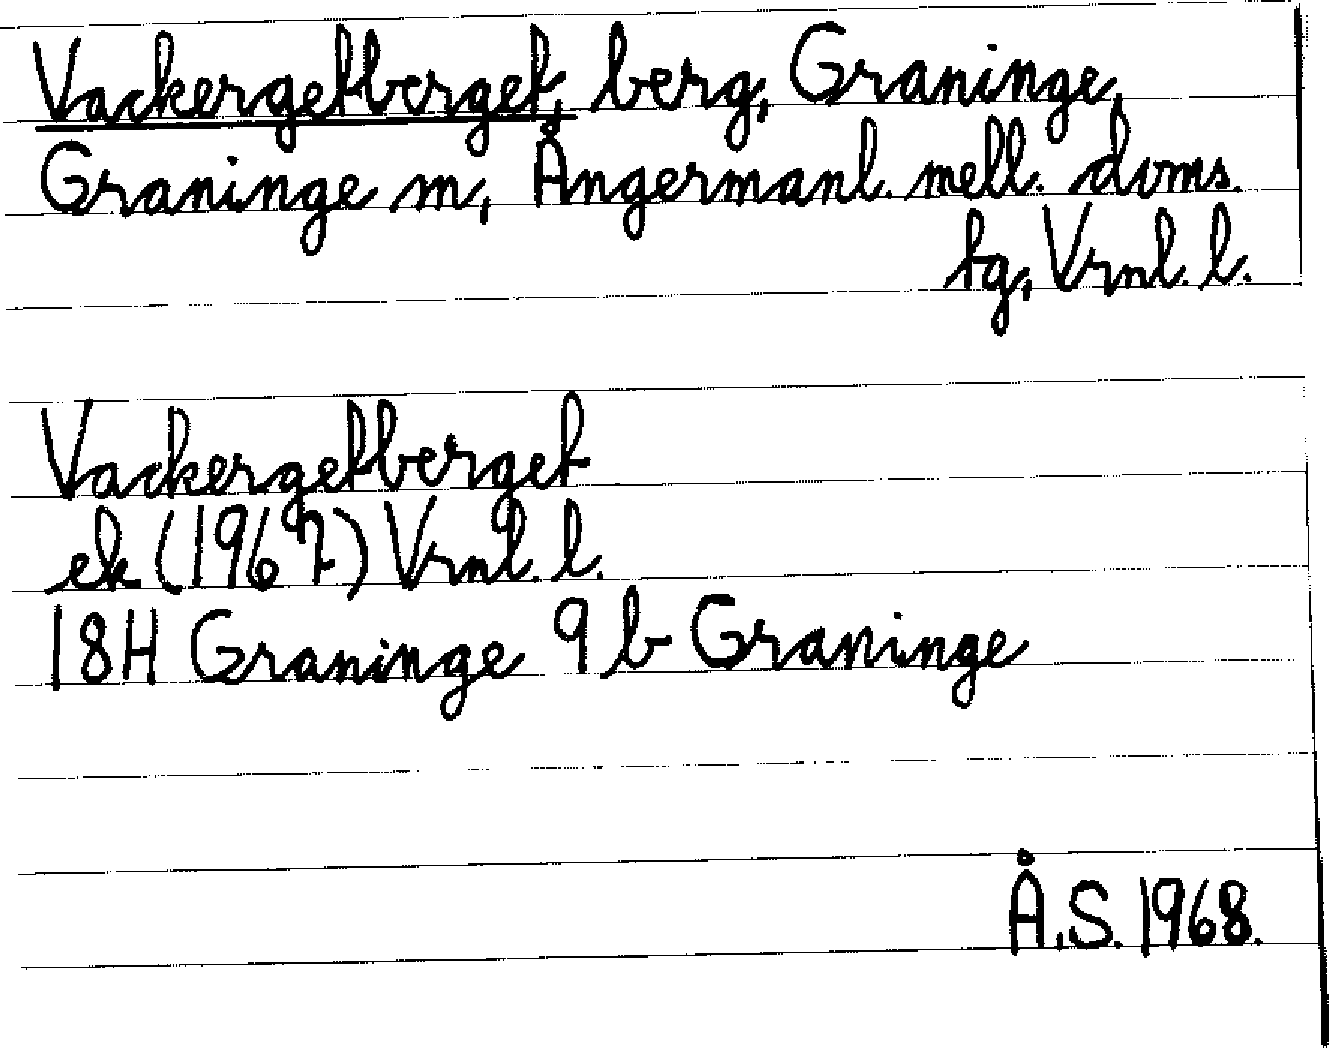 Vackergetberget, berg, Graninge,
Graninge sn, Ångermanl. mell. doms.
tg, Vrnl. l.
Vackergetberget
ek (1967) Vrnl. l.
18H Graninge 9 b Graninge
Å.S. 1968.